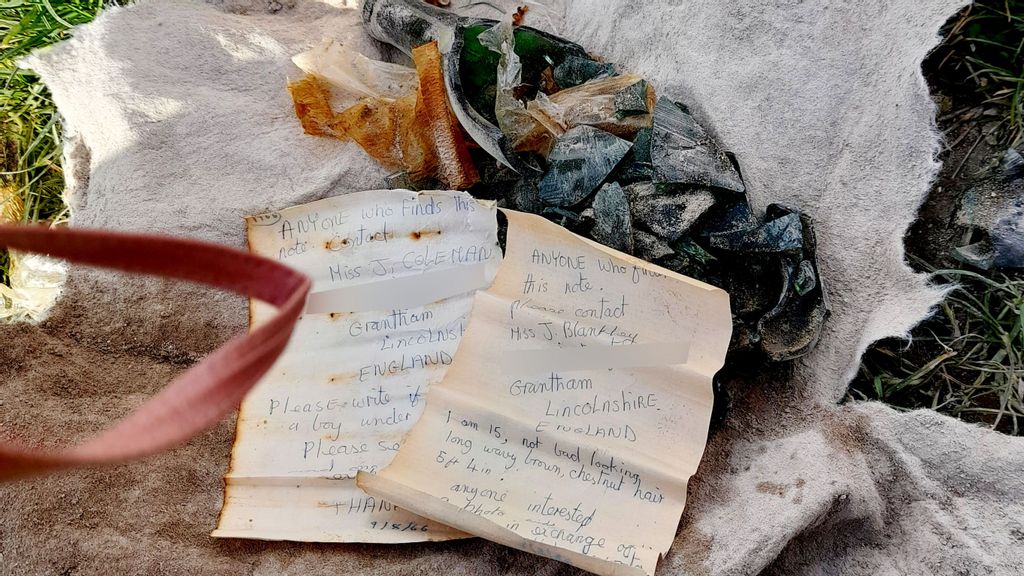 ANYONE who finds this
note contact
MISS J. COLEMAN
Grantham
LINCOLNSH
ENGLAND
Please write if
a boy under
Please se
THAN
9/8/66
ANYONE who fin
this note.
please contact
MISS J. Blankley
Grantham
LINCOLNSHIRE.
ENGLAND
I am 15, not bad looking,
long wavy brown, chestnut hair
5 ft 4 in
anyone interested
photo in exchange of